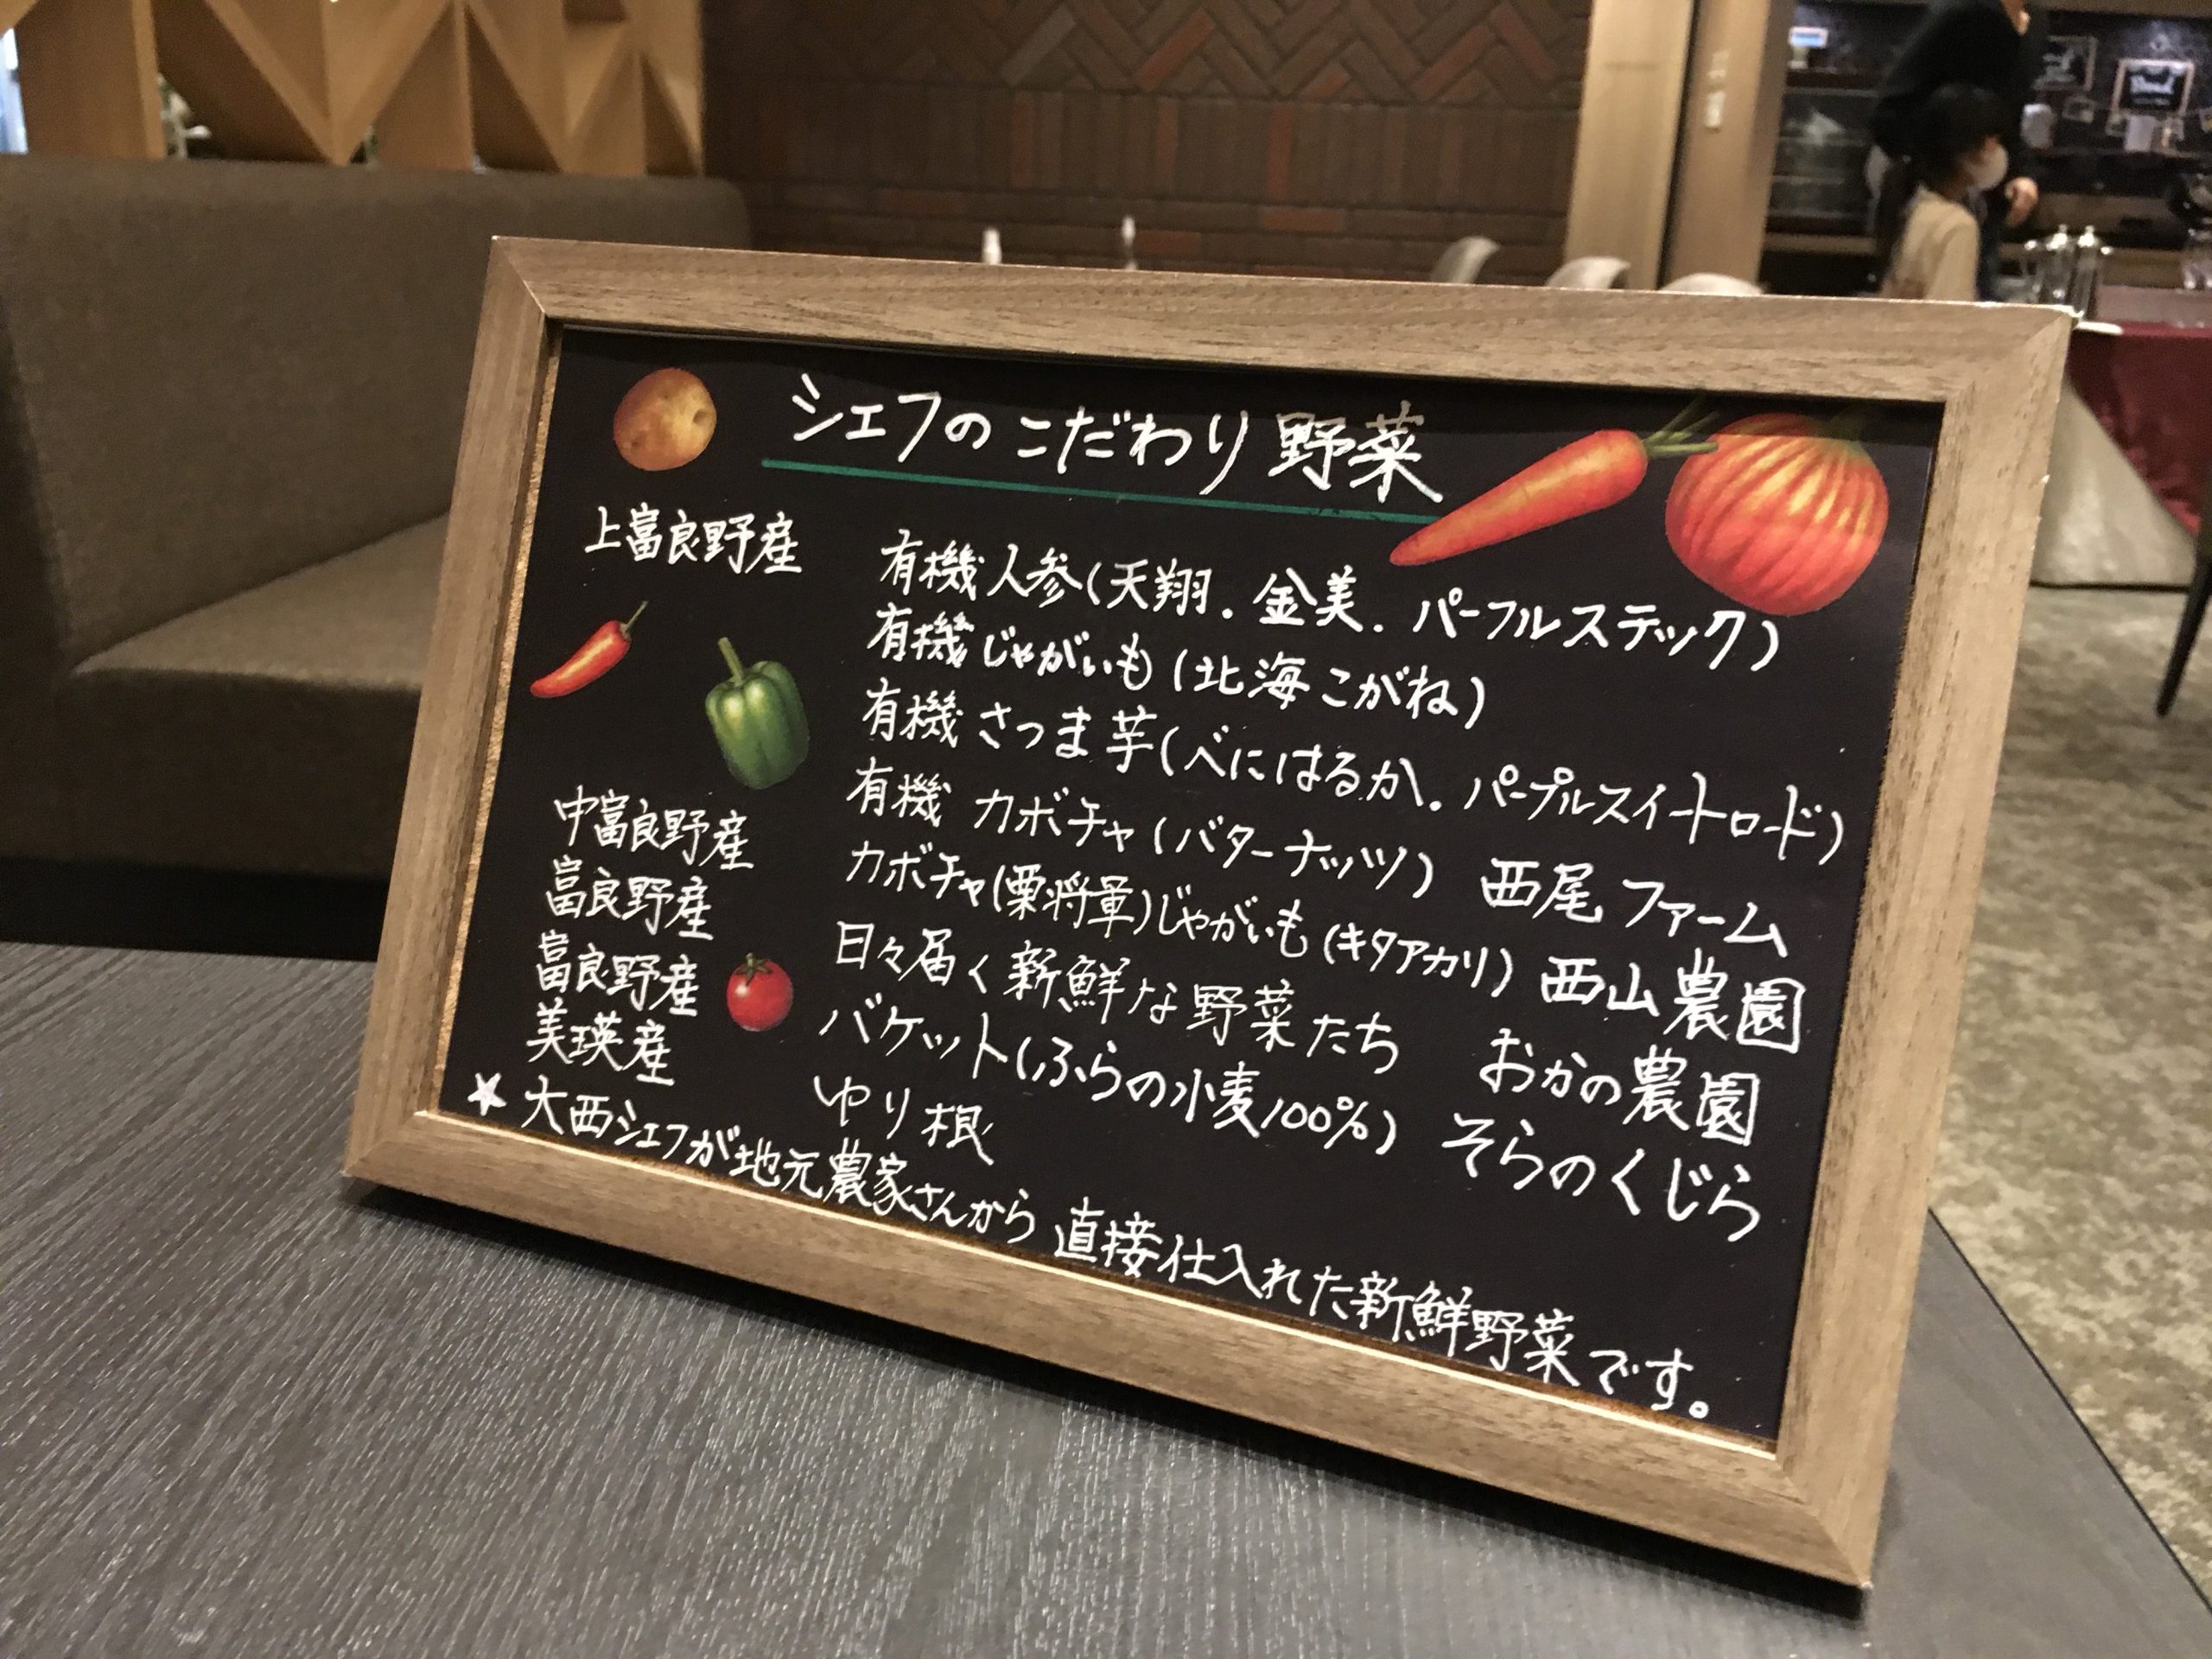 シェフの こだわり 野菜
上富良野産 有機 人参(天翔.金美.パープルスティック)
有機 じゃがいも(北海こがね)
有機 さつま芋(べにはるか.パープルスイートロード)
有機 カボチャ(バターナッツ) 西尾ファーム
中富良野産 カボチャ(栗将軍)じゃがいも(キタアカリ) 西山農園
富良野産 日々届く新鮮な野菜たち おかの農園
富良野産 バケット(ふらの小麦100%) そらのくじら
美瑛産 ゆり根
★大西シェフが地元農家さんから直接仕入れた新鮮野菜です。